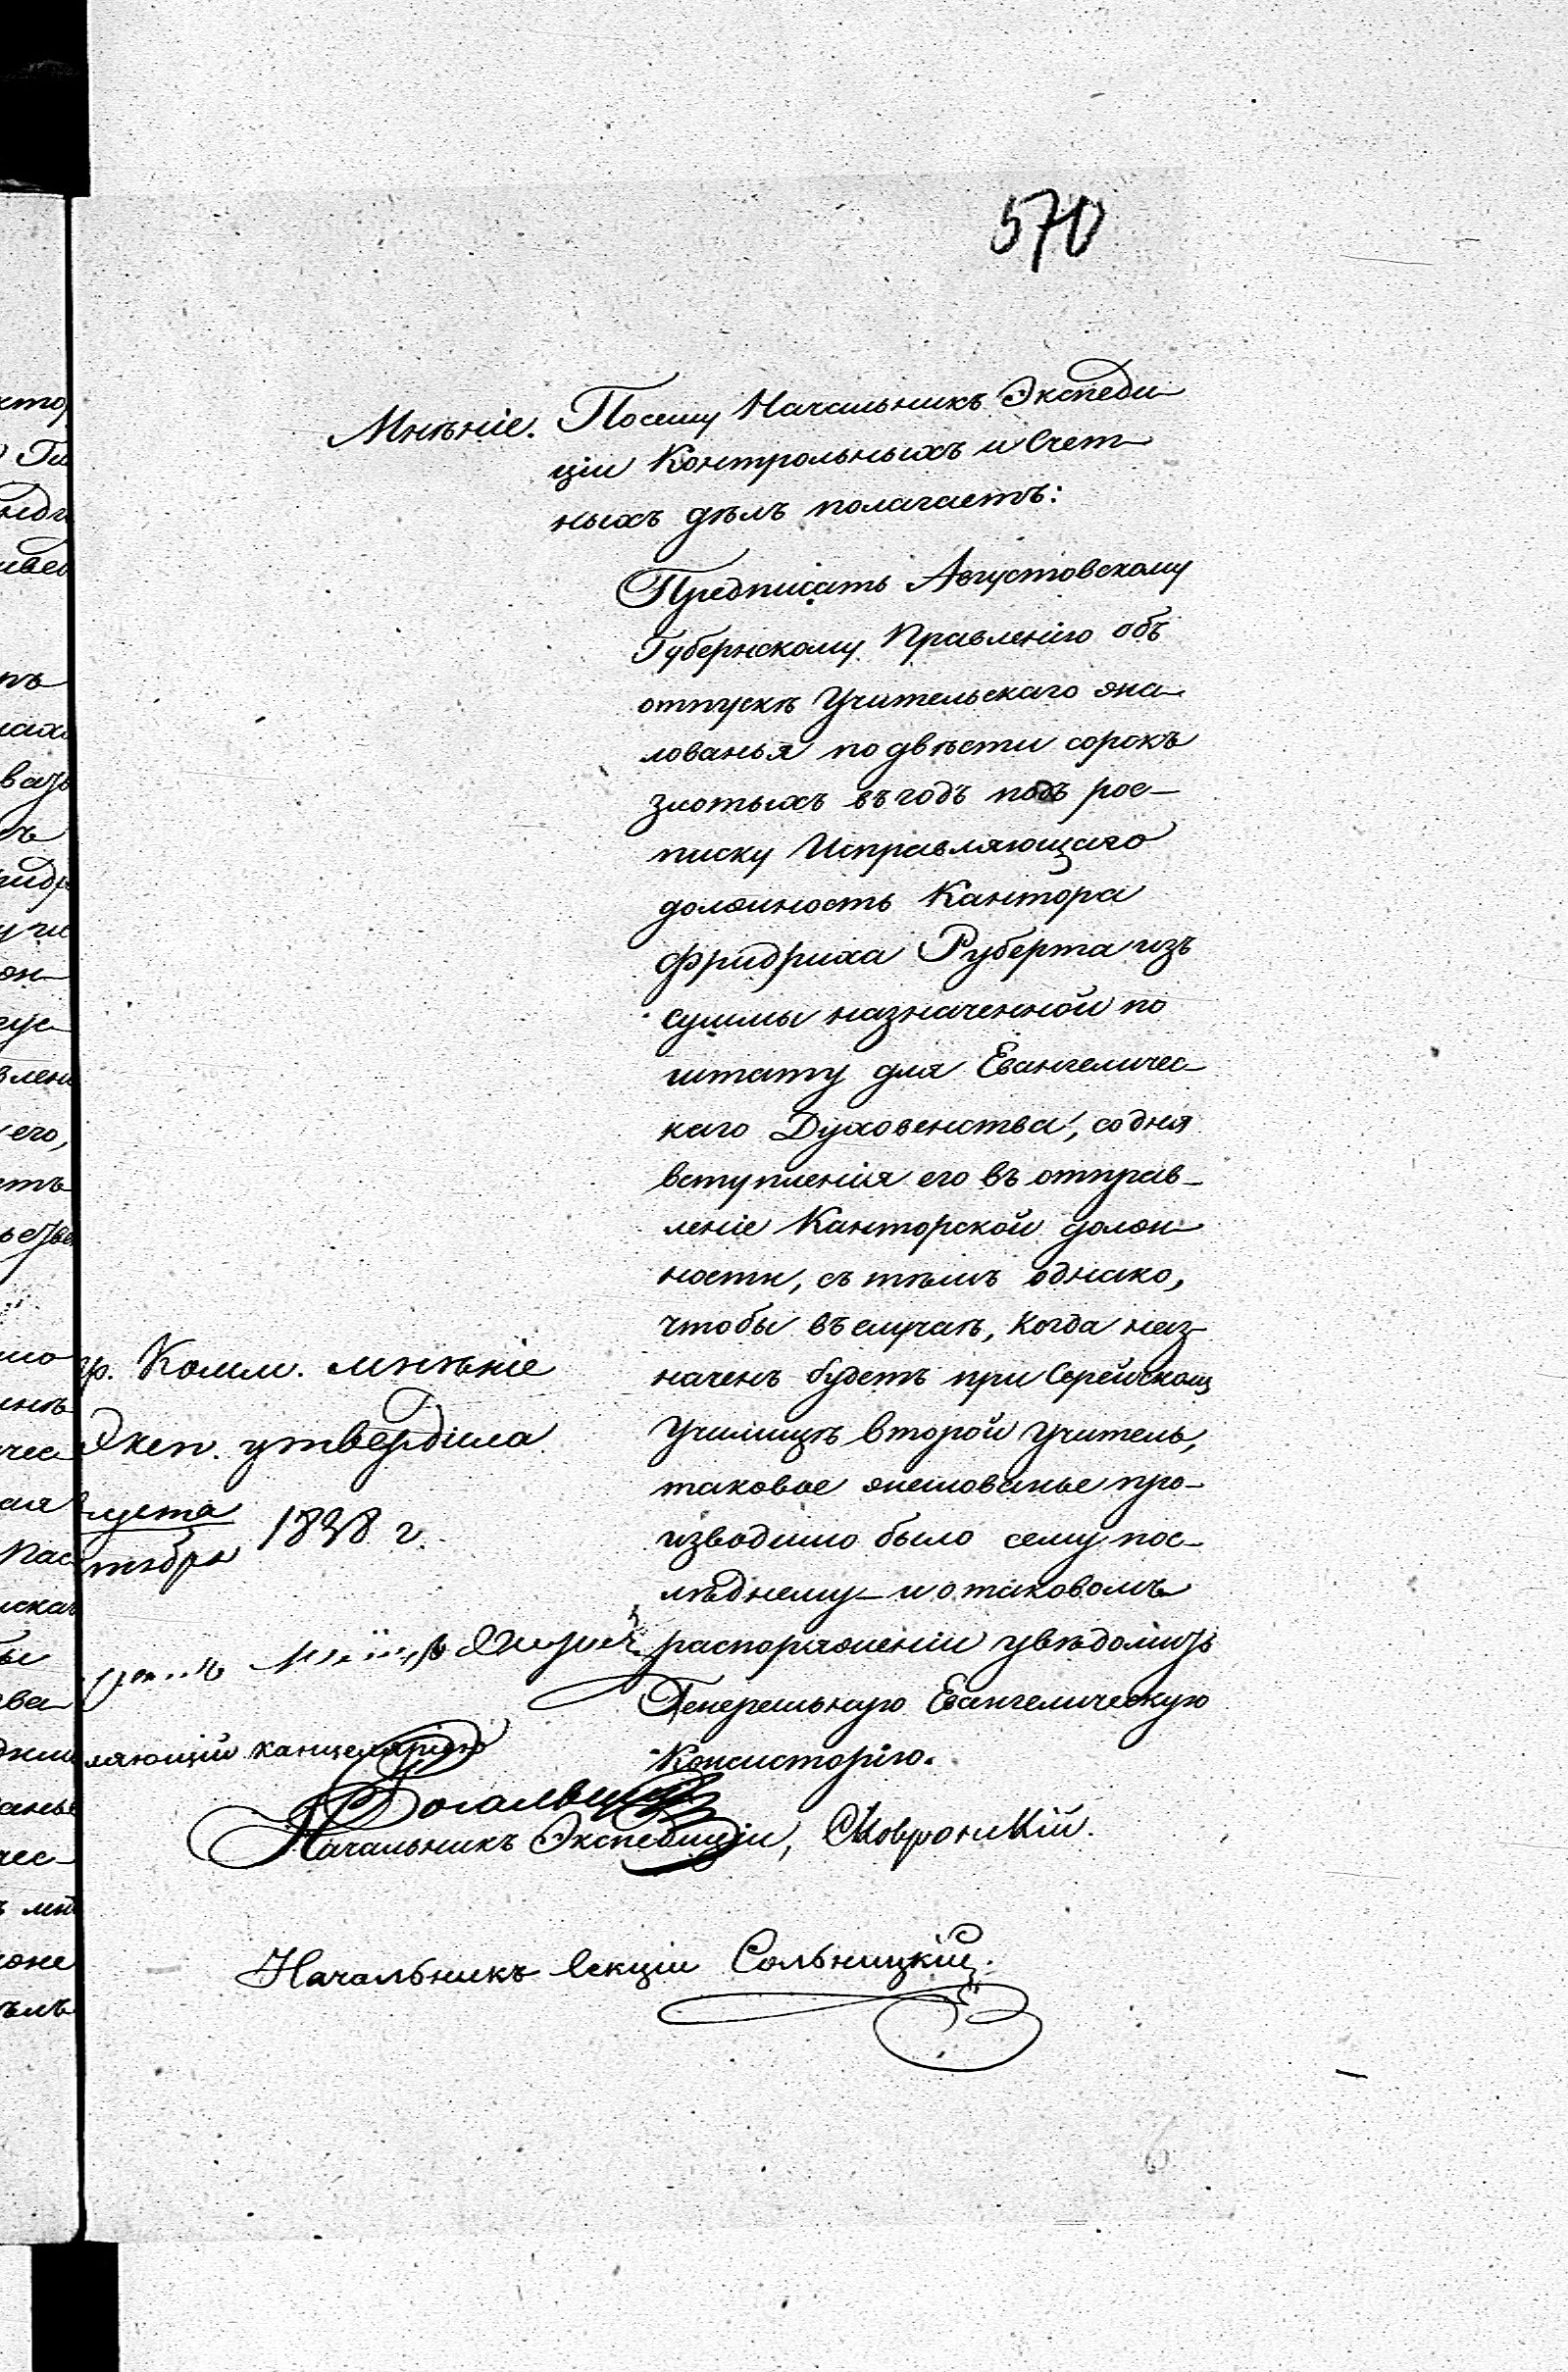 570
Мнѣніе. Посему Начальникъ Экспеди-
ціи Контрольныхъ и Счет-
ныхъ дѣлъ полагаетъ:
Предписать Августовскому
Губернскому Правленію объ
отпускѣ Учительскаго жа-
лованья по двѣсти сорокъ
злотыхъ въ годъ подъ рос-
писку Исправляющаго
должность Кантора
Фридриха Руберта изъ
суммы назначенной по
штату для Евангеличес-
каго Духовенства, со дня
вступленія его въ отправ-
леніе Канторской долж-
ности, съ тѣмъ однако,
чтобы въ случаѣ, когда наз-
наченъ будетъ при Серейскомъ
Училищѣ второй учитель,
таковое жалованье про-
изводимо было сему пос-
лѣднему — и о таковомъ
распоряженіи увѣдомить
Генеральную Евангелическую
Консисторію.
р. Комм. мнѣніе
Эксп. утвердила
густа
тября 1838 г.
ляющій канцеляріею
Начальникъ Экспедиціи, Сковронскій.
Начальникъ Секціи Сольницкій.